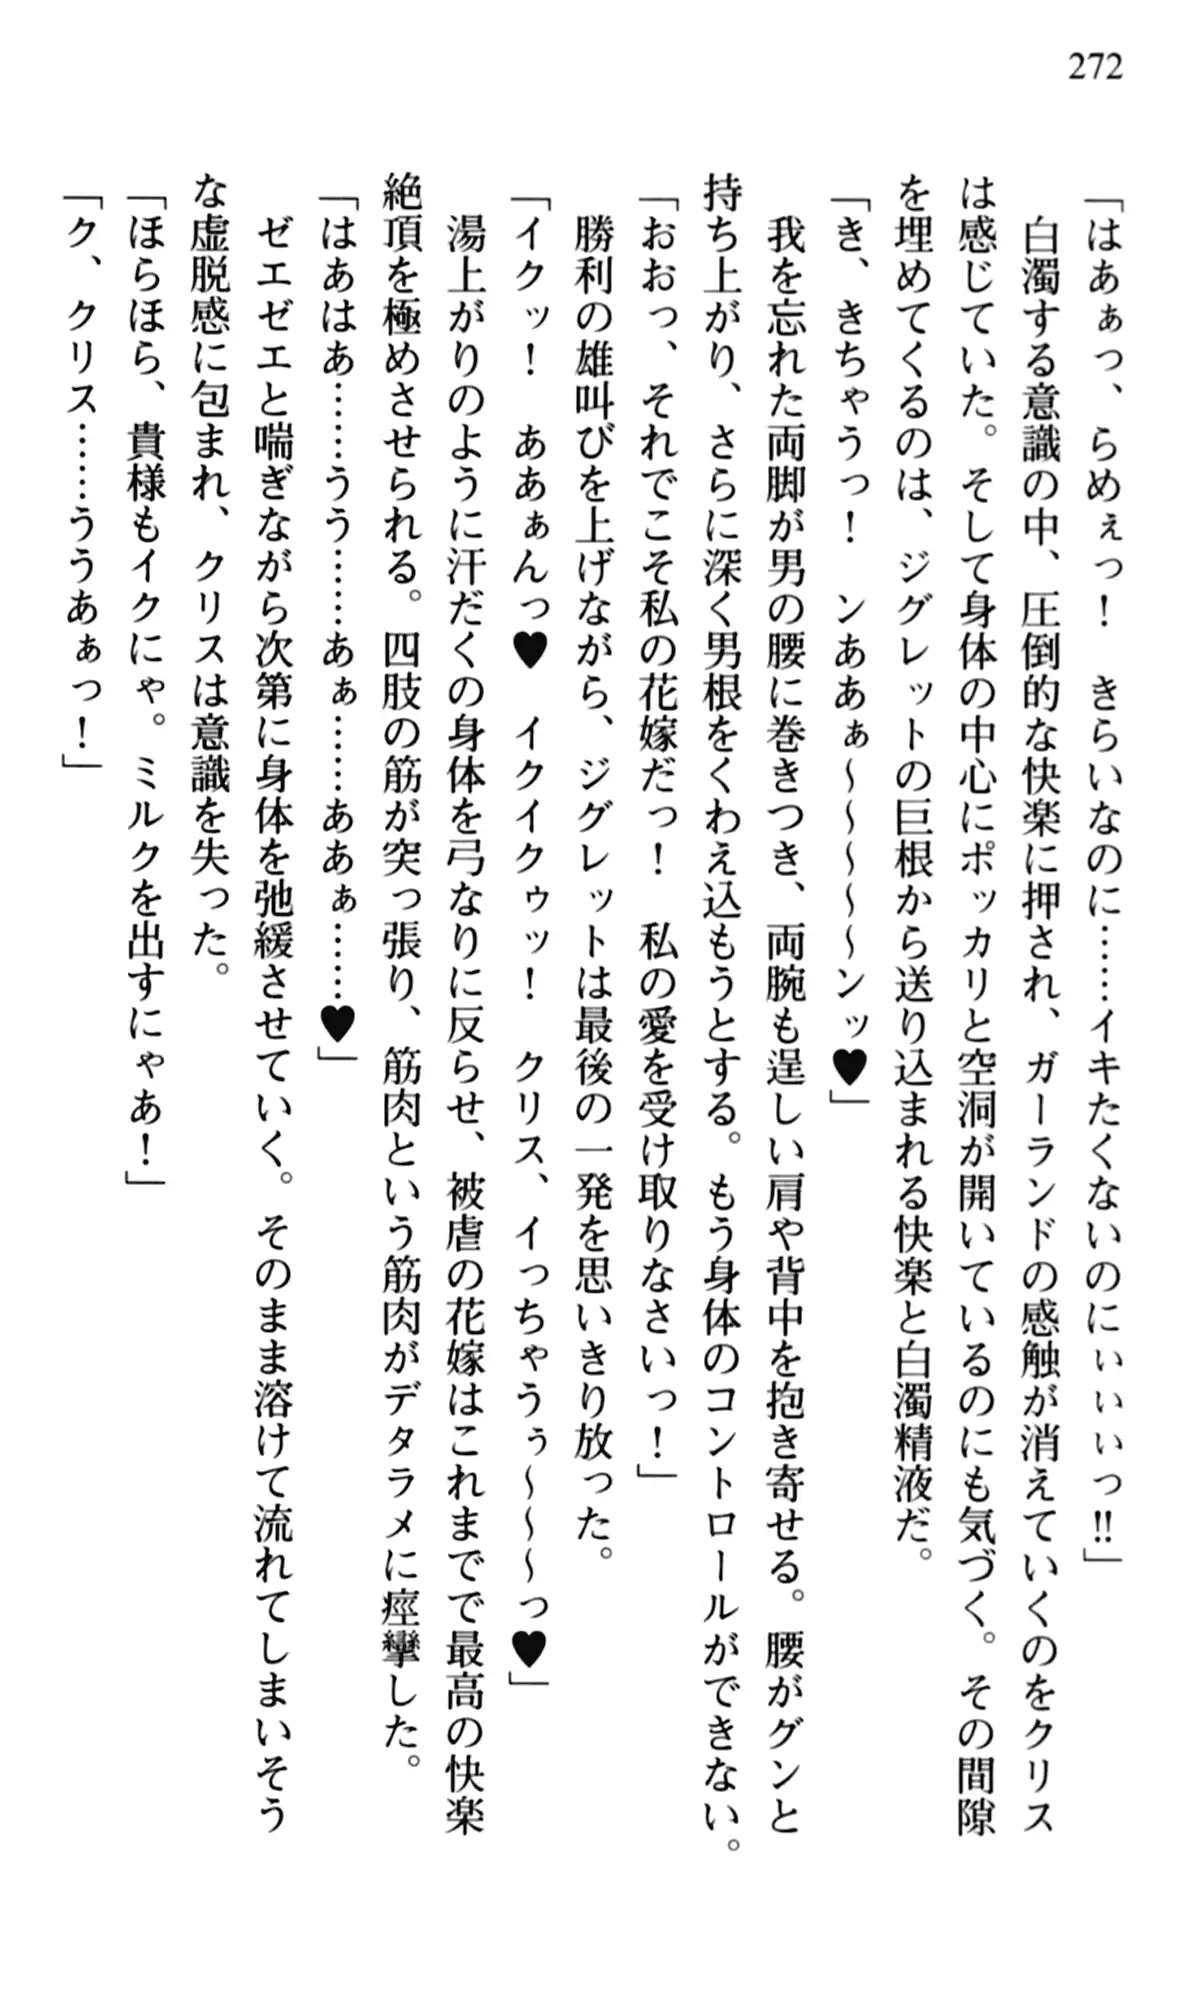 272
「はあぁっ、らめぇっ！　きらいなのに……イキたくないのにぃぃぃっ!!」
　白濁する意識の中、圧倒的な快楽に押され、ガーランドの感触が消えていくのをクリス
は感じていた。そして身体の中心にポッカリと空洞が開いているのにも気づく。その間隙
を埋めてくるのは、ジグレットの巨根から送り込まれる快楽と白濁精液だ。
「き、きちゃうっ！　ンああぁ～～～～～ンッ♥」
　我を忘れた両脚が男の腰に巻きつき、両腕も逞しい肩や背中を抱き寄せる。腰がグンと
持ち上がり、さらに深く男根をくわえ込もうとする。もう身体のコントロールができない。
「おおっ、それでこそ私の花嫁だっ！　私の愛を受け取りなさいっ！」
　勝利の雄叫びを上げながら、ジグレットは最後の一発を思いきり放った。
「イクッ！　ああぁんっ♥　イクイクゥッ！　クリス、イっちゃうぅ～～～っ♥」
　湯上がりのように汗だくの身体を弓なりに反らせ、被虐の花嫁はこれまでで最高の快楽
絶頂を極めさせられる。四肢の筋が突っ張り、筋肉という筋肉がデタラメに痙攣した。
「はあはあ……うう……あぁ……ああぁ……♥」
　ゼエゼエと喘ぎながら次第に身体を弛緩させていく。そのまま溶けて流れてしまいそう
な虚脱感に包まれ、クリスは意識を失った。
「ほらほら、貴様もイクにゃ。ミルクを出すにゃあ！」
「ク、クリス……ううあぁっ！」